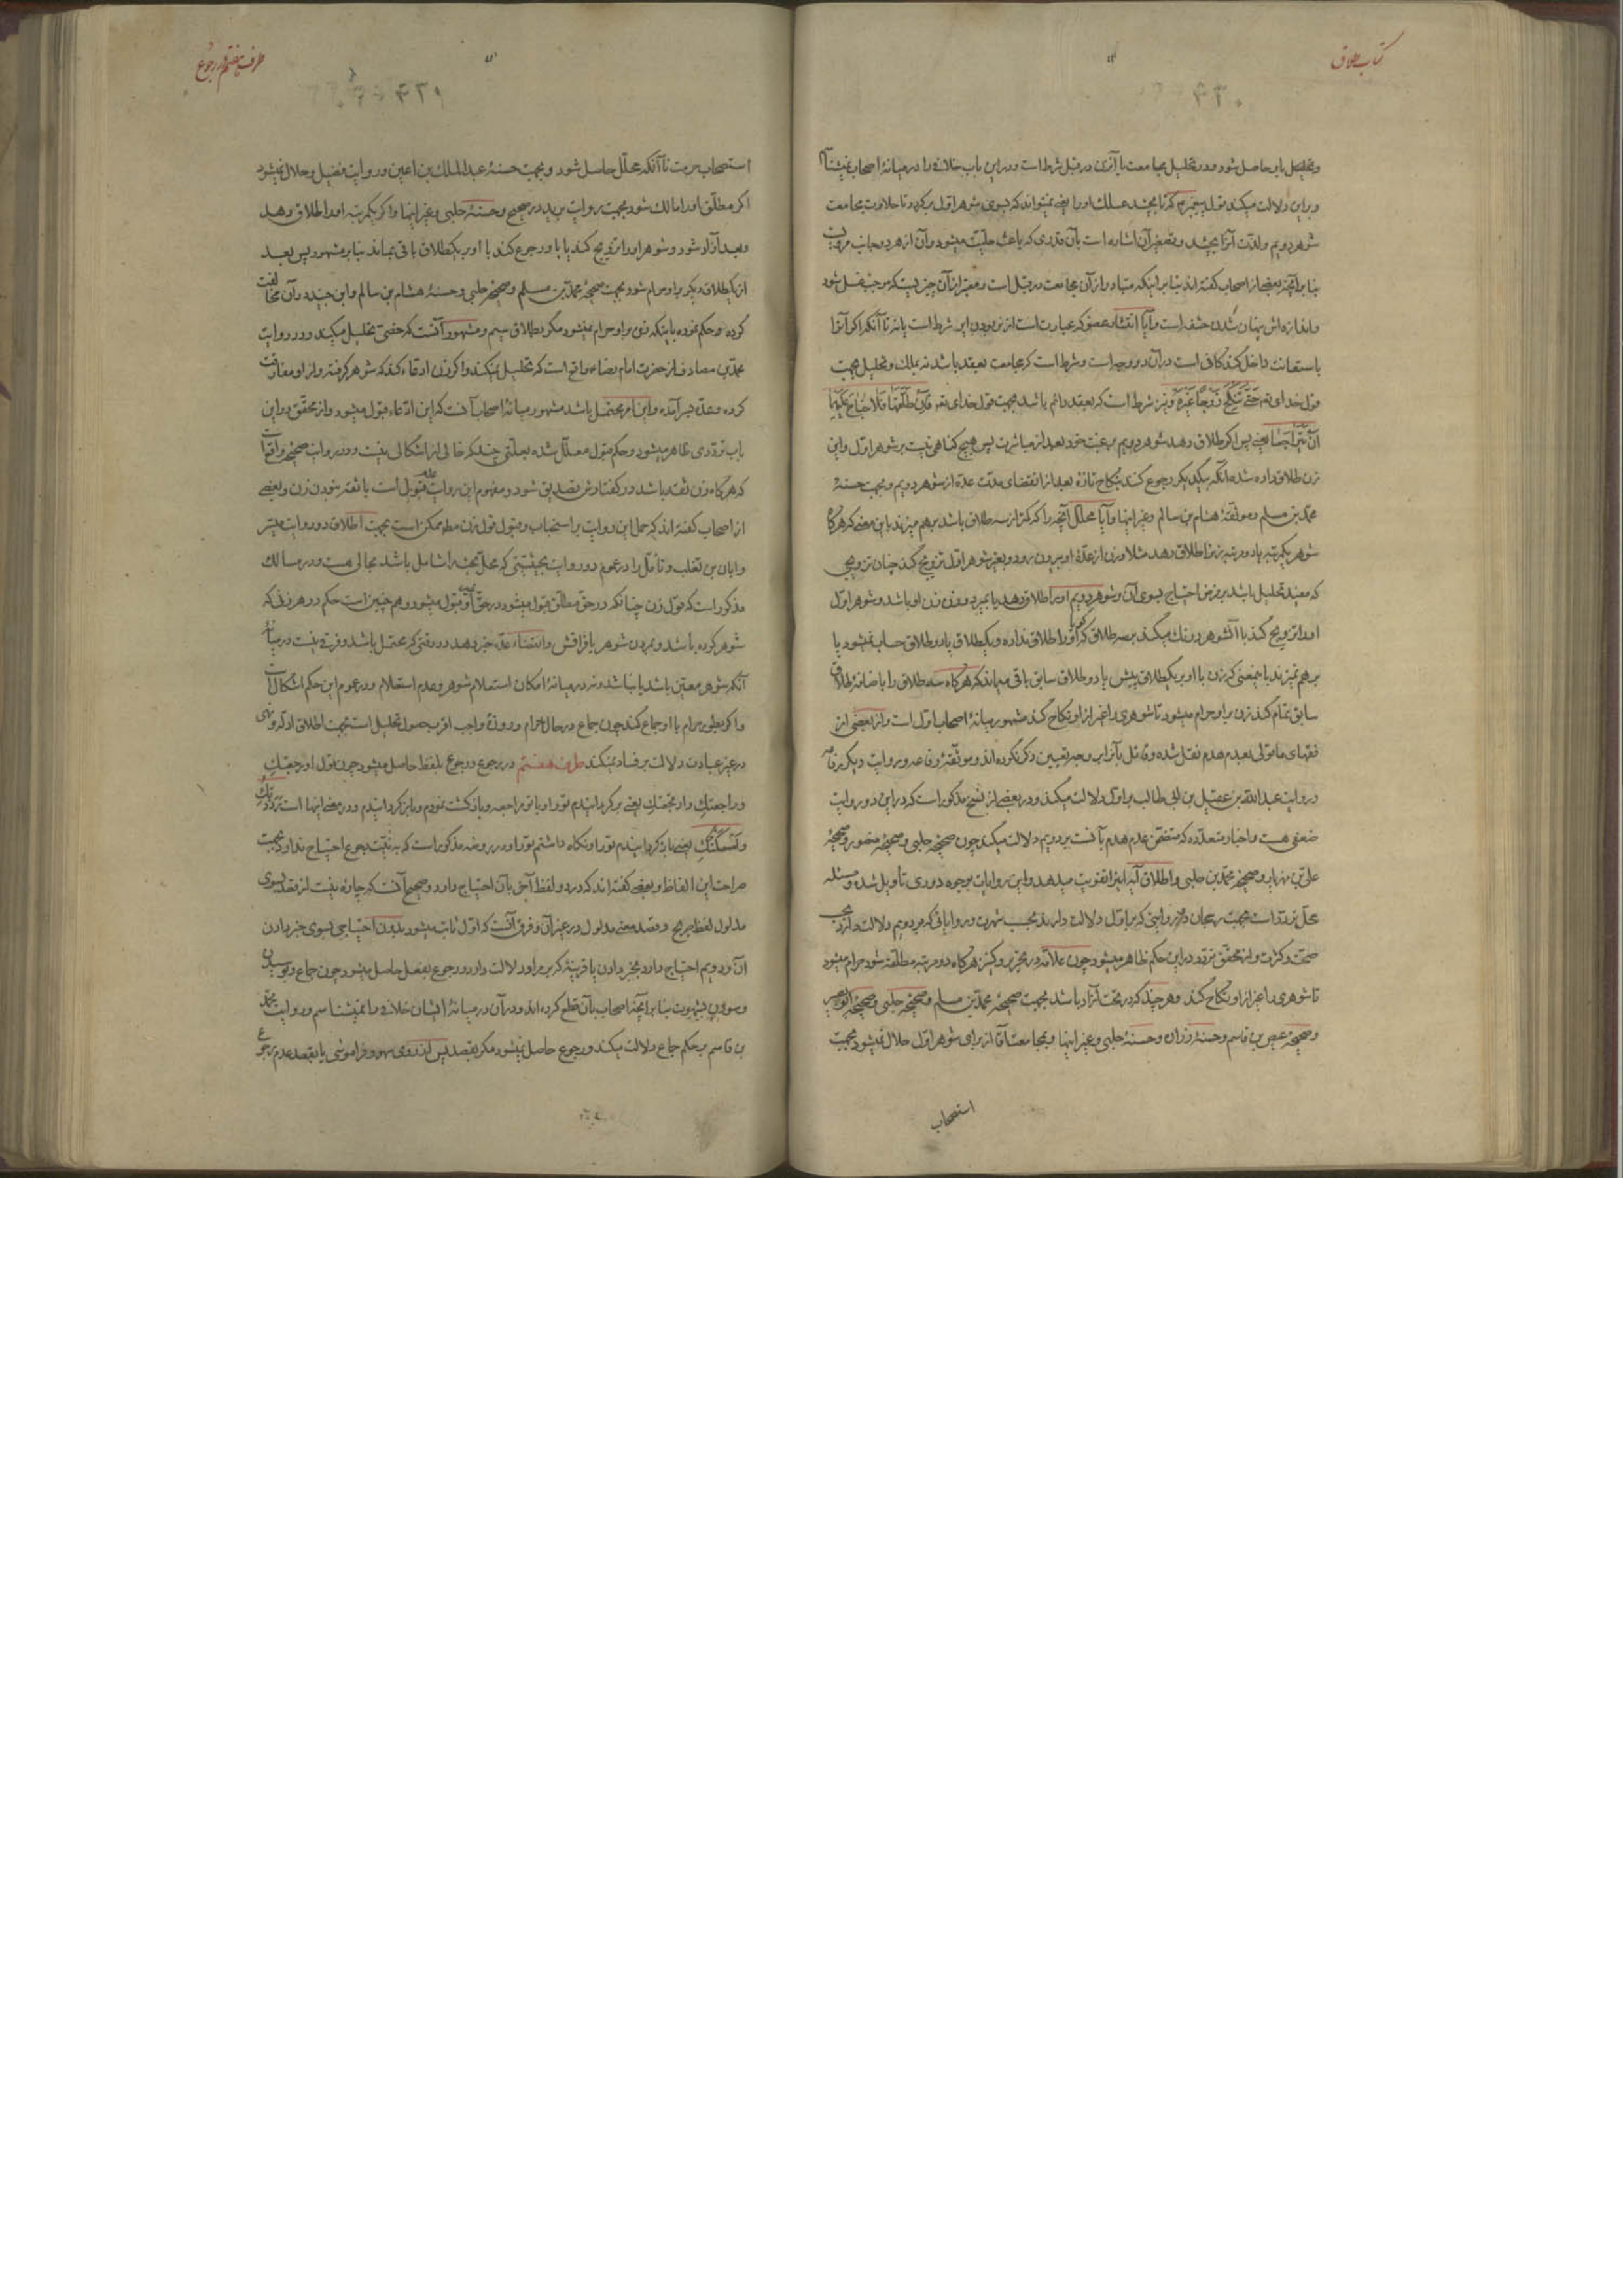 کتاب طلاق
۴۳۰
و تحلیل باو حاصل شود و در تحلیل مجامعت با آن زن در قبل شرط است و در این باب خلافی را در میانهٔ اصحاب نمیشناسم
و بر این دلالت میکند قول پیغمبرم که تا بچشد عسلک او را یعنی نمیتواند که بسوی شوهر اول برگردد تا حلاوت مجامعت
شوهر دویم ولذت آنرا بچشد و تصغیر آن اشاره است بآن قدری که باعث حلیّت میشود و آن از هر دو جانب
بنا بر آنچه بعضی از اصحاب گفته اند بنا بر اینکه متبادر از آن مجامعت در قبل است و معتبر از آن چیزیست که موجب غسل شود
و اندازه اش پنهان شدن حشفه است و آیا انتشار عضو که عبارت است از بودن این شرط است یا نه تا آنکه اگر آنرا
باستعانت داخل کند کافی است در آن دو وجه است و شرط است که مجامعت بعقد باشد نه بملک و تحلیل بجهت
قول خدای تعم حَتّی تَنْکِحَ زَوْجًا غَیْرَهُ و نیز شرط است که بعقد دائم باشد بجهت قول خدای تعم فَاِنْ طَلَّقَهَا فَلا جُنَاحَ عَلَیْهِمَا
اَنْ یَتَرَاجَعَا یعنی پس اگر طلاق دهد شوهر دویم برغبت خود بعد از مباشرت پس هیچ گناهی نیست بر شوهر اول و این
زن طلاق داده شده آنکه بیکدیگر رجوع کنند بنکاح تازه بعد از انقضای مدت عدّه از شوهر دویم و بجهت حسنهٔ
محمد بن مسلم و موثقهٔ هشام بن سالم و غیر اینها و آیا محلّل آنچه را که کمتر از سه طلاق باشد برهم میزند باین معنی که هرگاه
شوهر یکمرتبه یا دو مرتبه زنرا طلاق دهد مثلا و زن از عدّهٔ او بیرون رود و بغیر شوهر اول تزویج کند چنان تزویجی
که مفید تحلیل باشد بر فرض احتیاج بسوی آن و شوهر دویم او را طلاق دهد یا بمیرد و زن او باشد و شوهر اول
او را تزویج کند با آن شوهر درنک میکند بر سه طلاق گویا او را طلاق نداده و یکطلاق یا دو طلاق حساب نمیشود یا
برهم نمیزند باینمعنی که زن با او بر یکطلاق پیش یا دو طلاق سابق باقی میماند که هرگاه سه طلاق را باضافهٔ طلاق
سابق تمام کند زن بر او حرام میشود تا شوهری را غیر از او نکاح کند مشهور میانهٔ اصحاب اول است و از بعضی از
فقهای ما قولی بعدم هدم نقل شده و قائل بآنرا بر وجه تعیین ذکر نکرده اند و موثقهٔ رفاعه و روایت دیگر رفاعه
و روایت عبد الله بن عقیل بن ابی طالب بر اول دلالت میکند و در بعضی از نسخ مذکور است که در این دو روایت
ضعفی هست و اخبار متعدّده که متضمّن عدم هدم بآنست بر دویم دلالت میکند چون صحیحهٔ حلبی و صحیحهٔ منصور و صحیحهٔ
علی بن مهزیار و صحیحهٔ محمد بن حلبی و اطلاق آیه اینرا تقویت میدهد و این روایات بوجوه دوری تأویل شده و مسئله
محلّ تردّد است بجهت رجحان روایتی که بر اول دلالت دارند بحسب شهرت و روایاتی که بر دویم دلالت دارند بحسب
صحت و کثرت و از محقّق تردد در این حکم ظاهر میشود چون علامه در تحریر و کنیز هرگاه دو مرتبه مطلقه شود حرام میشود
تا شوهری را غیر از او نکاح کند و هر چند که در تحت آزاد باشد بجهت صحیحهٔ محمد بن مسلم و صحیحهٔ حلبی و صحیحهٔ ابو بصیر
و صحیحهٔ عیص بن قاسم و حسنهٔ زراره و حسنهٔ حلبی و غیر اینها و بمجامعت آقا از برای شوهر اول حلال نمیشود بجهت
استصحاب
طرف هفتم در رجوع
۴۳۱
استصحاب حرمت تا آنکه محلّل حاصل شود و بجهت حسنهٔ عبد الملک بن اعین و روایت فضیل و حلال نمیشود
اگر مطلّق او را مالک شود بجهت روایت برید در صحیح و حسنهٔ حلبی و غیر اینها و اگر یکمرتبه او را طلاق دهد
و بعد آزاد شود و شوهر او را تزویج کند یا باو رجوع کند با او بر یکطلاق باقی بماند بنا بر مشهور پس بعد
از یکطلاق دیگر بر او حرام شود بجهت صحیحهٔ محمد بن مسلم و صحیحهٔ حلبی و حسنهٔ هشام بن سالم و ابن جنید در آن مخالفت
کرده و حکم نموده باینکه زن بر او حرام نمیشود مگر بطلاق سیم و مشهور آنست که خصی تحلیل میکند و در روایت
محمد بن مصادف از حضرت امام رضا واقع است که تحلیل نمیکند و اگر زن ادعاء کند که شوهر گرفته و از او مفارقت
کرده و عدّه سر آمده و این امر محتمل باشد مشهور میانهٔ اصحاب آنست که این ادعاء قبول میشود و از محقّق در این
باب تردّدی ظاهر میشود و حکم قبول معلّل شده بعلّتی چند که خالی از اشکالی نیست و در روایت صحیحه واقع است
که هرگاه زن ثقه باشد در گفتارش تصدیق شود و مفهوم این روایت عدم قبول است با ثقه نبودن زن و بعضی
از اصحاب گفته اند که حمل این روایت بر استحباب و قبول قول زن مطم ممکن است بجهت اطلاق دو روایت میسر
و ابان بن تغلب و تأمّل را در عموم دو روایت بحیثیتی که محلّ بحث را شامل باشد مجالی هست و در مسالک
مذکور است که قول زن چنانکه در حقّ مطلّق قبول میشود در حقّ او نیز قبول میشود و هم چنین است حکم در هر زنی که
شوهر کرده باشد و بمردن شوهر یا فراقش و انقضاء عدّه خبر دهد در وقتی که محتمل باشد و فرقی نیست در میانهٔ
آنکه شوهر معیّن باشد یا نباشد و نه در میانهٔ امکان استعلام شوهر و عدم استعلام و در عموم این حکم اشکال است
و اگر بطور حرام با او جماع کند چون جماع در حال احرام و روزهٔ واجب اقرب حصول تحلیل است بجهت اطلاق ادلّه و نهی
در غیر عبادت دلالت بر فساد نمیکند طرف هفتم در رجوع و رجوع بلفظ حاصل میشود چون قول او رجعتکِ
و راجعتکِ و ارتجعتکِ یعنی برگردانیدم تو را و با تو مراجعه و بازگشت نمودم و باز گردانیدم و در معنی اینها است رددتکِ
و اَمْسَکْتُکِ یعنی باز گردانیدم تو را و نگاه داشتم تو را و در روضه مذکور است که به نیّت رجوع احتیاج ندارد بجهت
صراحت این الفاظ و بعضی گفته اند که در دو لفظ آخر بآن احتیاج دارد و صحیح آنست که چاره نیست از قصد بسوی
مدلول لفظ صریح و قصد معنی مدلول در غیر آن و فرق آنست که اول ثابت میشود بدون احتیاجی بسوی خبر دادن
از آن و دویم احتیاج دارد بخبر دادن یا قرینهٔ که بر مراد دلالت دارد و رجوع بفعل حاصل میشود چون جماع و بوسیدن
و سودن بشهوت بنا بر آنچه اصحاب بآن قطع کرده اند و در آن در میانهٔ ایشان خلافی را نمیشناسم و روایت محمّد
بن قاسم بر حکم جماع دلالت میکند و رجوع حاصل نمیشود مگر بقصد پس از روی سهو و فراموشی یا بقصد عدم رجوع